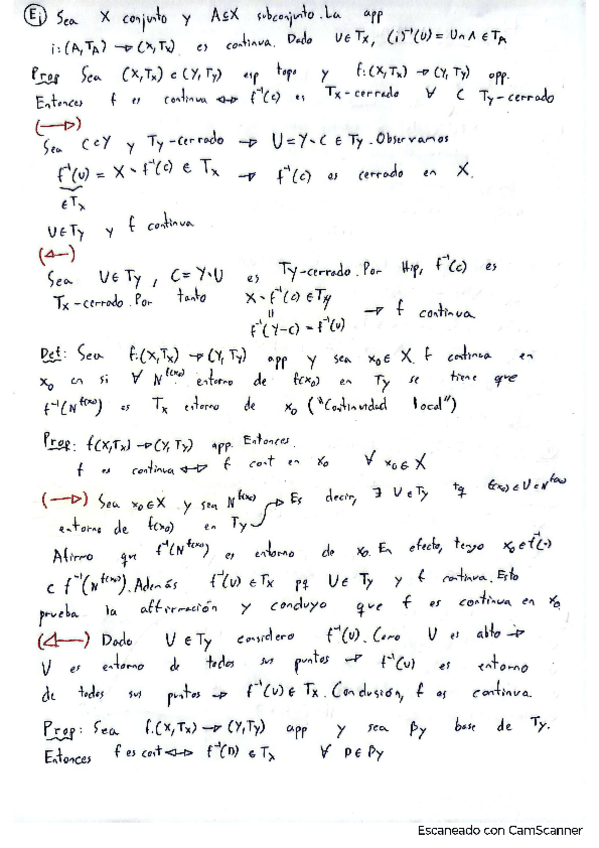 Ej Sea X conjunto y A⊆X subconjunto. La app
i:(A,TA) → (X,Tx). es continua. Dado U∈Tx, (i)⁻¹(U)=U∩A∈TA
Prop Sea (X,Tx) e (Y,Ty) esp topo y f:(X,Tx)→(Y,Ty) app.
Entonces f es continua ↔ f⁻¹(C) es Tx-cerrado ∀ C Ty-cerrado
(→)
Sea C⊂Y y Ty-cerrado → U=Y∖C ∈ Ty. Observamos
f⁻¹(U) = X∖f⁻¹(C) ∈ Tx → f⁻¹(C) es cerrado en X.
∈Tx
U∈Ty y f continua
(←)
Sea U∈Ty, C=Y∖U es Ty-cerrado. Por Hip, f⁻¹(C) es
Tx-cerrado. Por tanto X∖f⁻¹(C) ∈Ty
=
→ f continua
f⁻¹(Y-C) = f⁻¹(U)
Def: Sea f:(X,Tx)→(Y,Ty) app y sea x₀∈X. f continua en
x₀ en si ∀ N^f(x₀) entorno de f(x₀) en Ty se tiene que
f⁻¹(N^f(x₀)) es Tx entorno de x₀ ("Continuidad local")
Prop: f(X,Tx)→(Y,Ty) app. Entonces.
f es continua ↔ f cont en x₀ ∀ x₀∈X
(→) Sea x₀∈X y sea N^f(x₀) Es decir, ∃ U∈Ty tq f(x₀)∈U⊂N^f(x₀)
entorno de f(x₀) en Ty
Afirmo que f⁻¹(N^f(x₀)) es entorno de x₀. En efecto, tengo x₀∈f⁻¹(U)
⊂ f⁻¹(N^f(x₀)). Además f⁻¹(U)∈Tx pq U∈Ty y f continua. Esto
prueba la afirmación y concluyo que f es continua en x₀
(←) Dado U∈Ty considero f⁻¹(U). Como U es abto →
U es entorno de todos sus puntos → f⁻¹(U) es entorno
de todos sus puntos → f⁻¹(U)∈Tx. Conclusión, f es continua.
Prop: Sea f:(X,Tx)→(Y,Ty) app y sea βy base de Ty.
Entonces f es cont ↔ f⁻¹(D) ∈Tx ∀ D∈βy
Escaneado con CamScanner